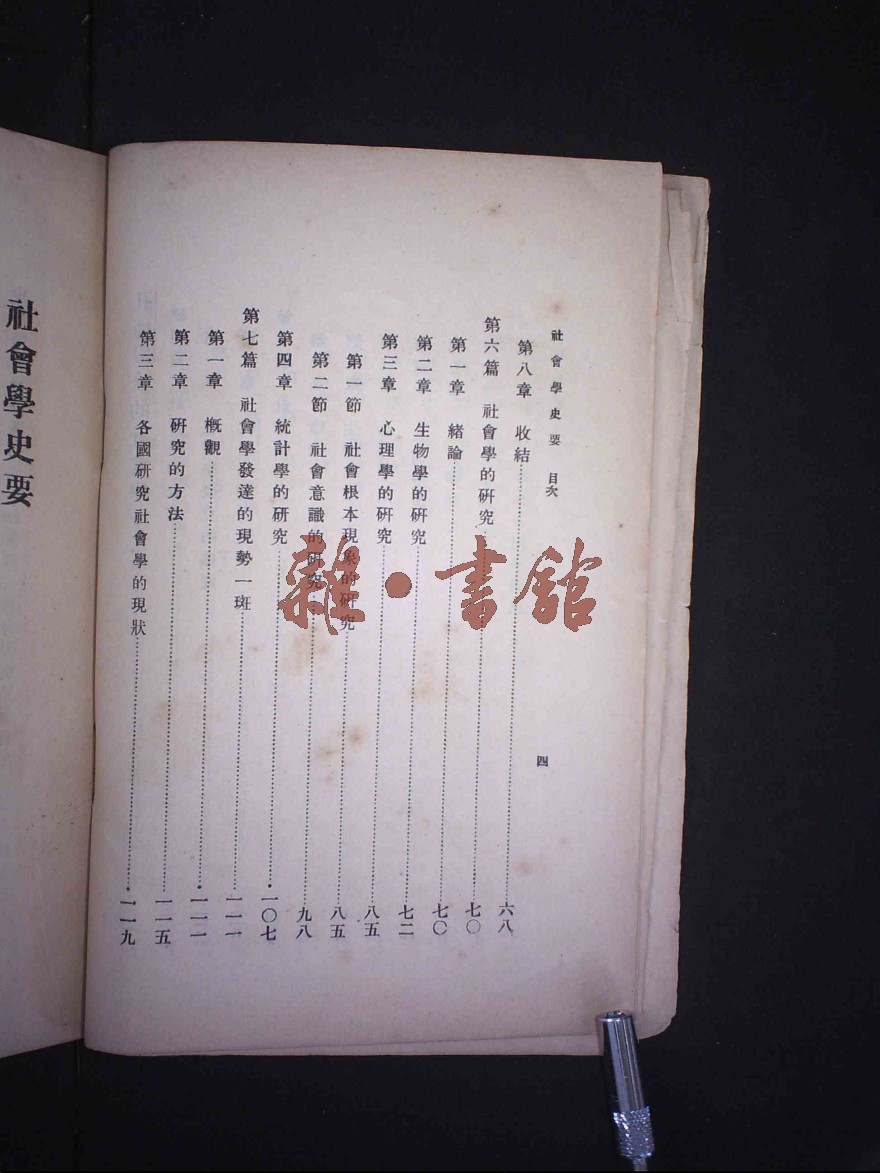 社會學史要 目次
四
第八章 收結……六八
第六篇 社會學的研究……七〇
第一章 緒論……七〇
第二章 生物學的研究……七二
第三章 心理學的研究……八五
第一節 社會根本現象的研究……八五
第二節 社會意識的研究……九八
第四章 統計學的研究……一〇七
第七篇 社會學發達的現勢一斑……一一一
第一章 概觀……一一一
第二章 研究的方法……一一五
第三章 各國研究社會學的現狀……一一九
社會學史要
雜·書館